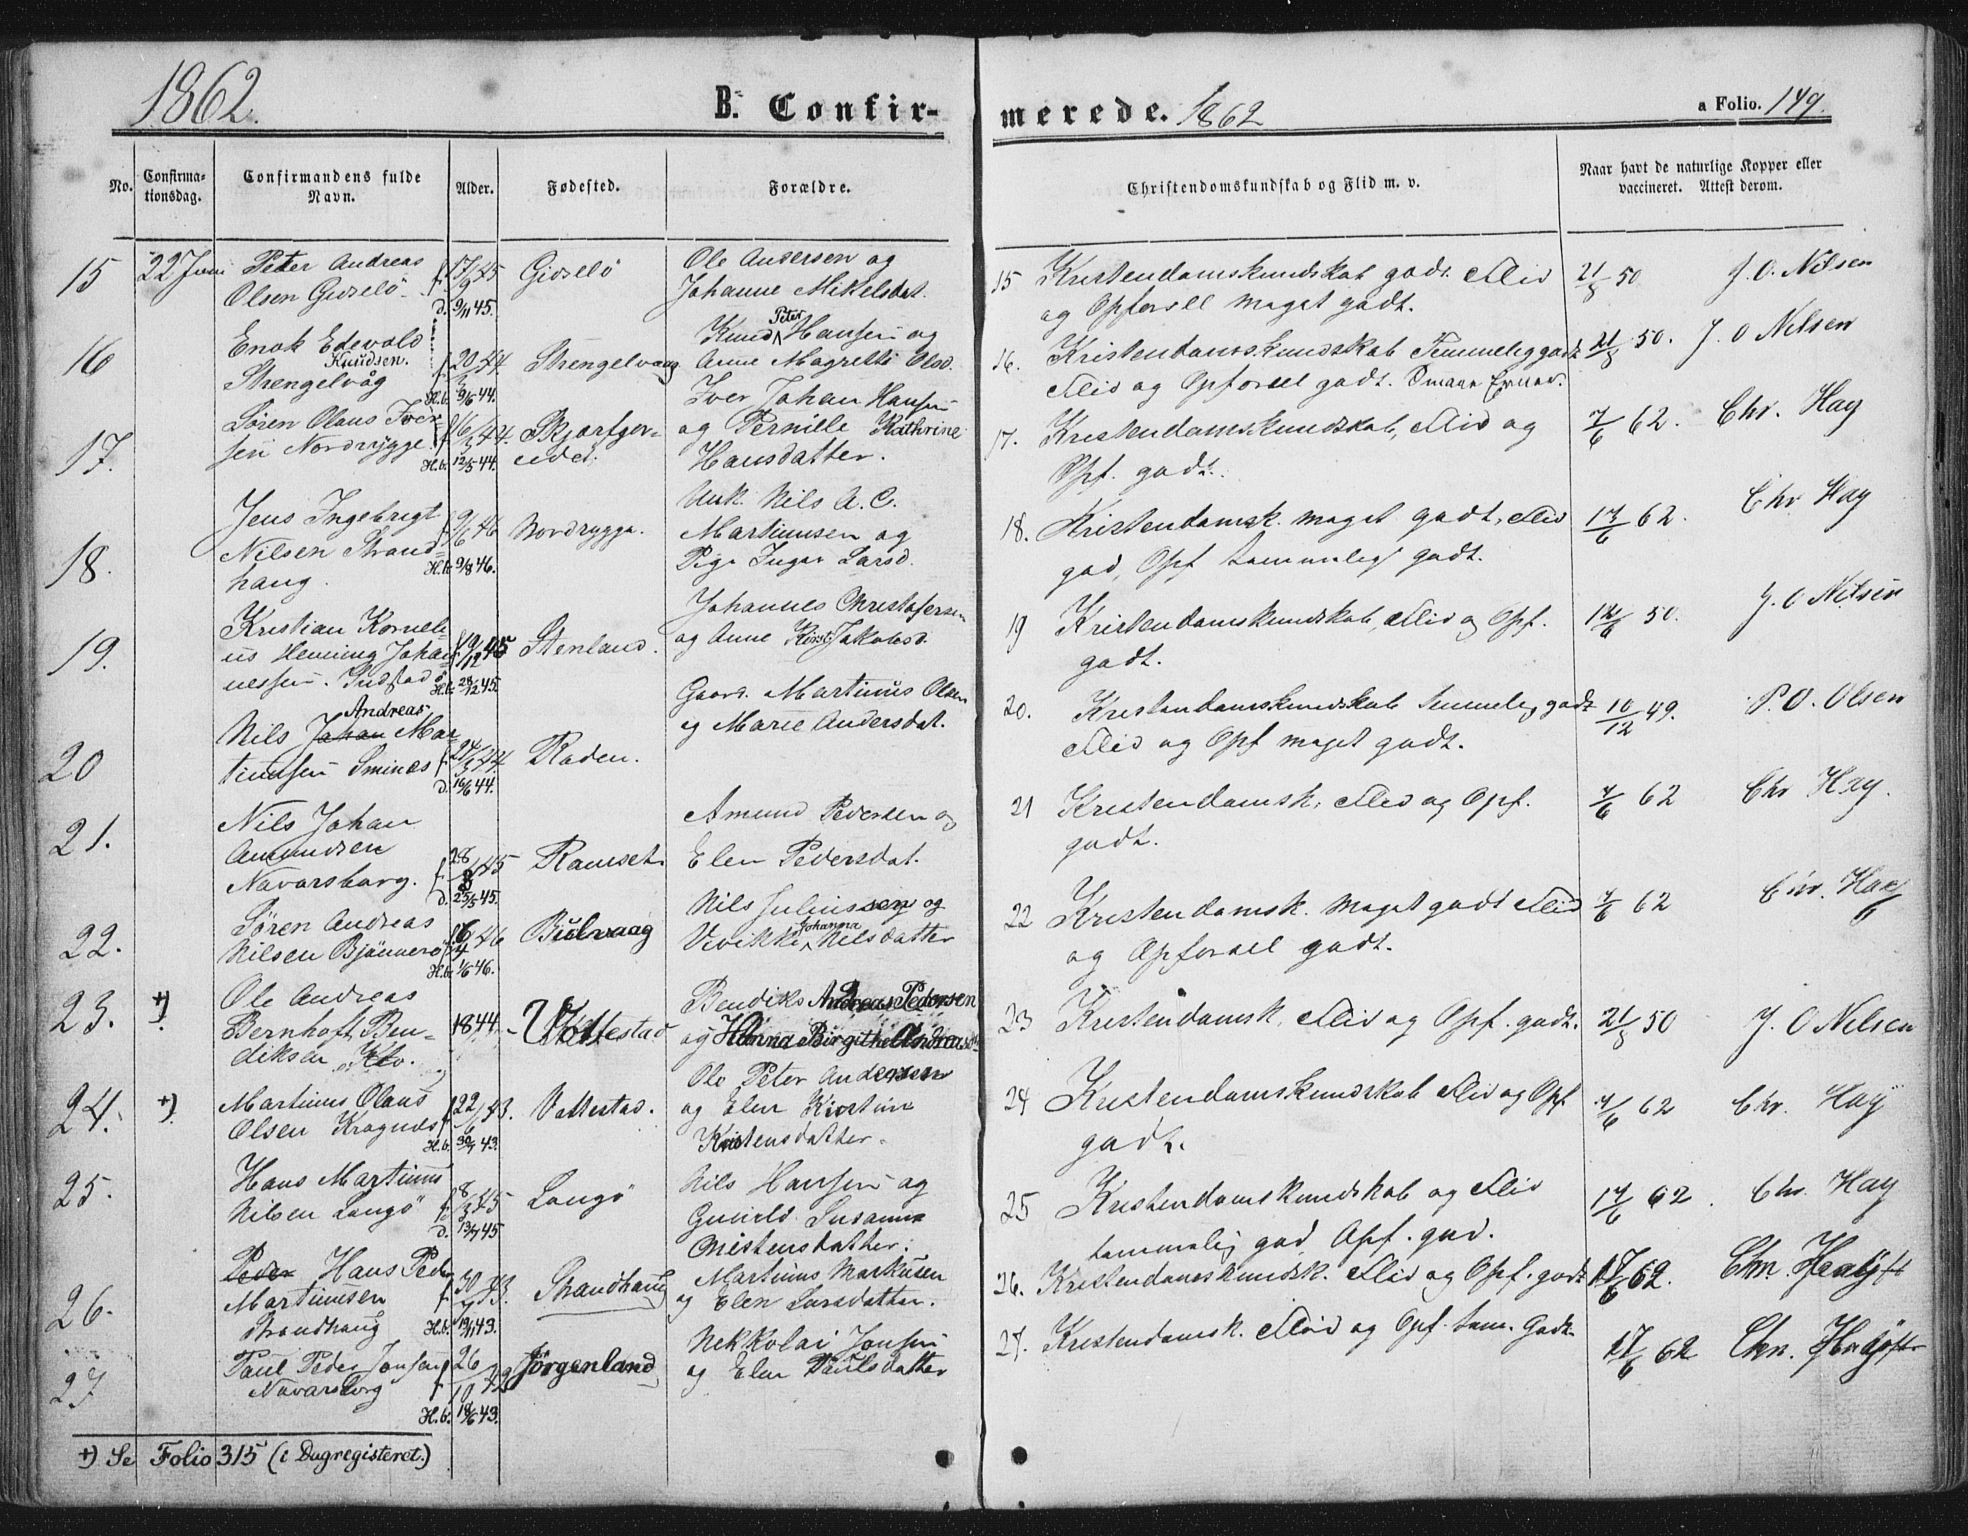 1862.
B. Confir-
merede. 1862
a Folio. 149.
No.
Confirma-
tionsdag.
Confirmandens fulde
Navn.
Alder.
Fødested.
Forældre.
Christendomskundskab og Flid m. v.
Naar havt de naturlige Kopper eller
vaccineret. Attest derom.
15 22 Juni Peter Andreas
Olsen Gidselö. Gidselö
d. 9/11 45.
Ole Andersen og
Johanne Mikelsdat.
16 Enok Edevald
Knudsen.
Strengelvåg
20/2 44.
H.b. 9/6 44.
Strengelvaag
Knud Peter Hansen og
Anne Magrethe Olsd.
17. Sören Olaus Iver-
sen Nordrygge.
16/3 44.
H.b. 12/5 44.
Skjorfger-
eidet.
Iver Johan Hansen
og Pernille Kathrine
Hansdatter.
18. Jens Ingebrigt
Nilsen Strand-
haug.
9/6 46
H.b. 9/8 46.
Nordrygge.
Unk. Nils A. C.
Martinusen og
Pige Inger Larsd.
19. Kristian Korneli-
us Henning Johan-
nessen. 
19/12 45
H.b. 28/12 45.
Stenland.
Johannes Christofersen
og Anne Kirst. Jakobsd.
20 Nils Johan Andreas Mar-
tinusen Sminæs
24/3 44.
d. 16/6 44.
Raden.
Gaard. Martinus Olsen
og Marie Andersdat.
21. Nils Johan
Amundsen
Navarsborg.
28/3 45
d. 25/5 45.
Ramset.
Amund Pedersen og
Elen Pedersdat.
22. Sören Andreas
Nilsen Bjönnerö
6/4 46
H.b. 1/6 46.
Budvaag
Nils Juliussen og
Vivikke Johanna Nilsdatter
23. +) Ole Andreas
Bernhoft Ben-
diksen Klo.
1844.
Vottestad
Bendiks Andreas Pedersen
og Hanna Birgithe Andreasd.
24. +) Martinus Olaus
Olsen Kragnæs
22/6 43.
H.b. 30/7 43.
Vottestad.
Ole Peter Andersen
og Elen Kirstine
Kristensdatter.
25. Hans Martinus
Nilsen Langö
8/3 45
d. 13/7 45.
Langö
Nils Hansen og
Gunild Susanna
Christensdatter.
26. Peder Hans Peder
Martinusen
Strandhaug
30/7 43.
H.b. 19/11 43.
Strandhaug
Martinus Markusen
og Elen Larsdatter.
27 Paul Peder Jonsen
Navarsborg
26/10 42
H.b. 18/6 43.
Jörgenland
Nekkolai Jonsen
og Elen Paulsdatter
+) Se Folio 315 (i Dagregisteret.)
15 Kristendomskundskab godt. Flid 21/8 50 J. O. Nilsen
og Opförsel meget godt.
16. Kristendomskundskab Temmelig godt 21/8 50. J. O Nilsen
Flid og Opförsel godt.
17. Kristendomskundskab, Flid og 7/6 62. Chr. Hay
Opf. godt.
18. Kristendomsk. meget godt, Flid 17/6 62. Chr Hay
god, Opf temmelig godt.
19 Kristendomskundskab, Flid og Opf. 50. J. O Nilsen
godt.
20. Kristendomskundskab temmelig godt 10/12 49. P. O. Olsen
Flid og Opf meget godt.
21 Kristendomsk, Flid og Opf. 7/6 62 Chr Hay.
godt.
22 Kristendomsk. meget godt Flid 7/6 62 Chr. Hay
og Opförsel godt.
23 Kristendomsk, Flid og Opf. godt. 21/8 50 J. O Nilsen
24 Kristendomskundskab Flid og Opf 7/6 62 Chr. Hay
godt.
25 Kristendomskundskab og Flid 17/6 62. Chr. Hay
temmelig god Opf. god.
26. Kristendomskundsk. Flid og Opf. godt 17/6 62. Chr.
27. Kristendomsk. Flid og Opf. tem. Godt 17/6 62 Chr.